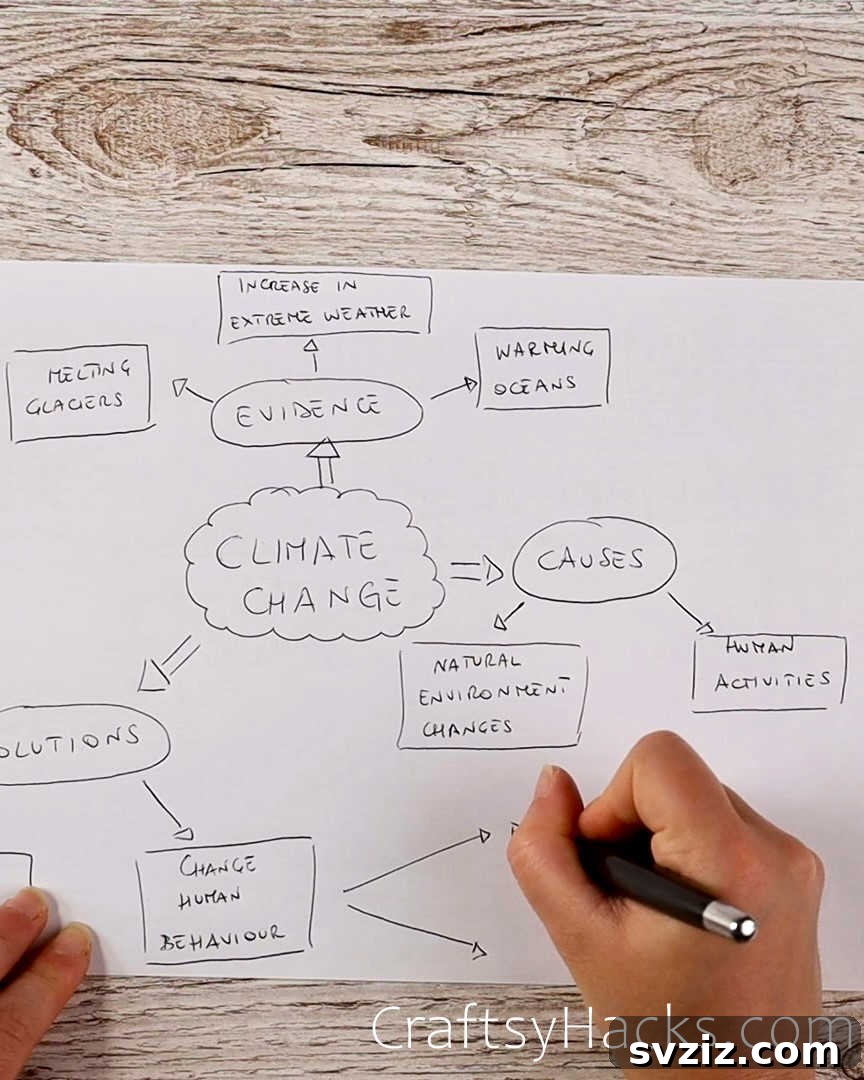 INCREASE IN
EXTREME WEATHER
MELTING
GLACIERS
WARMING
OCEANS
EVIDENCE
CLIMATE
CHANGE
CAUSES
NATURAL
ENVIRONMENT
CHANGES
HUMAN
ACTIVITIES
OLUTIONS
CHANGE
HUMAN
BEHAVIOUR
CraftsyHacks.com
svziz.com